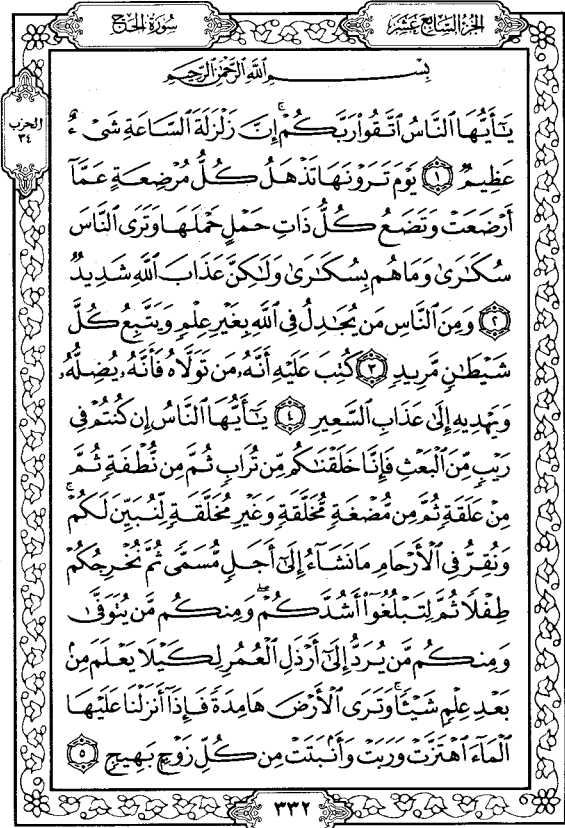 سُورَةُ الحَجِّ
الجُزْءُ السَّابِعَ عَشَرَ
الحزب
٣٤
بِسْمِ اللَّهِ الرَّحْمَٰنِ الرَّحِيمِ
يَٰٓأَيُّهَا ٱلنَّاسُ ٱتَّقُوا۟ رَبَّكُمْ ۚ إِنَّ زَلْزَلَةَ ٱلسَّاعَةِ شَىْءٌ
عَظِيمٌ ۝١ يَوْمَ تَرَوْنَهَا تَذْهَلُ كُلُّ مُرْضِعَةٍ عَمَّآ
أَرْضَعَتْ وَتَضَعُ كُلُّ ذَاتِ حَمْلٍ حَمْلَهَا وَتَرَى ٱلنَّاسَ
سُكَٰرَىٰ وَمَا هُم بِسُكَٰرَىٰ وَلَٰكِنَّ عَذَابَ ٱللَّهِ شَدِيدٌ
۝٢ وَمِنَ ٱلنَّاسِ مَن يُجَٰدِلُ فِى ٱللَّهِ بِغَيْرِ عِلْمٍ وَيَتَّبِعُ كُلَّ
شَيْطَٰنٍ مَّرِيدٍ ۝٣ كُتِبَ عَلَيْهِ أَنَّهُۥ مَن تَوَلَّاهُ فَأَنَّهُۥ يُضِلُّهُۥ
وَيَهْدِيهِ إِلَىٰ عَذَابِ ٱلسَّعِيرِ ۝٤ يَٰٓأَيُّهَا ٱلنَّاسُ إِن كُنتُمْ فِى
رَيْبٍ مِّنَ ٱلْبَعْثِ فَإِنَّا خَلَقْنَٰكُم مِّن تُرَابٍ ثُمَّ مِن نُّطْفَةٍ ثُمَّ
مِنْ عَلَقَةٍ ثُمَّ مِن مُّضْغَةٍ مُّخَلَّقَةٍ وَغَيْرِ مُخَلَّقَةٍ لِّنُبَيِّنَ لَكُمْ ۚ
وَنُقِرُّ فِى ٱلْأَرْحَامِ مَا نَشَآءُ إِلَىٰٓ أَجَلٍ مُّسَمًّى ثُمَّ نُخْرِجُكُمْ
طِفْلًا ثُمَّ لِتَبْلُغُوٓا۟ أَشُدَّكُمْ ۖ وَمِنكُم مَّن يُتَوَفَّىٰ
وَمِنكُم مَّن يُرَدُّ إِلَىٰٓ أَرْذَلِ ٱلْعُمُرِ لِكَيْلَا يَعْلَمَ مِنۢ
بَعْدِ عِلْمٍ شَيْـًٔا ۚ وَتَرَى ٱلْأَرْضَ هَامِدَةً فَإِذَآ أَنزَلْنَا عَلَيْهَا
ٱلْمَآءَ ٱهْتَزَّتْ وَرَبَتْ وَأَنۢبَتَتْ مِن كُلِّ زَوْجٍۭ بَهِيجٍ ۝٥
٣٣٢